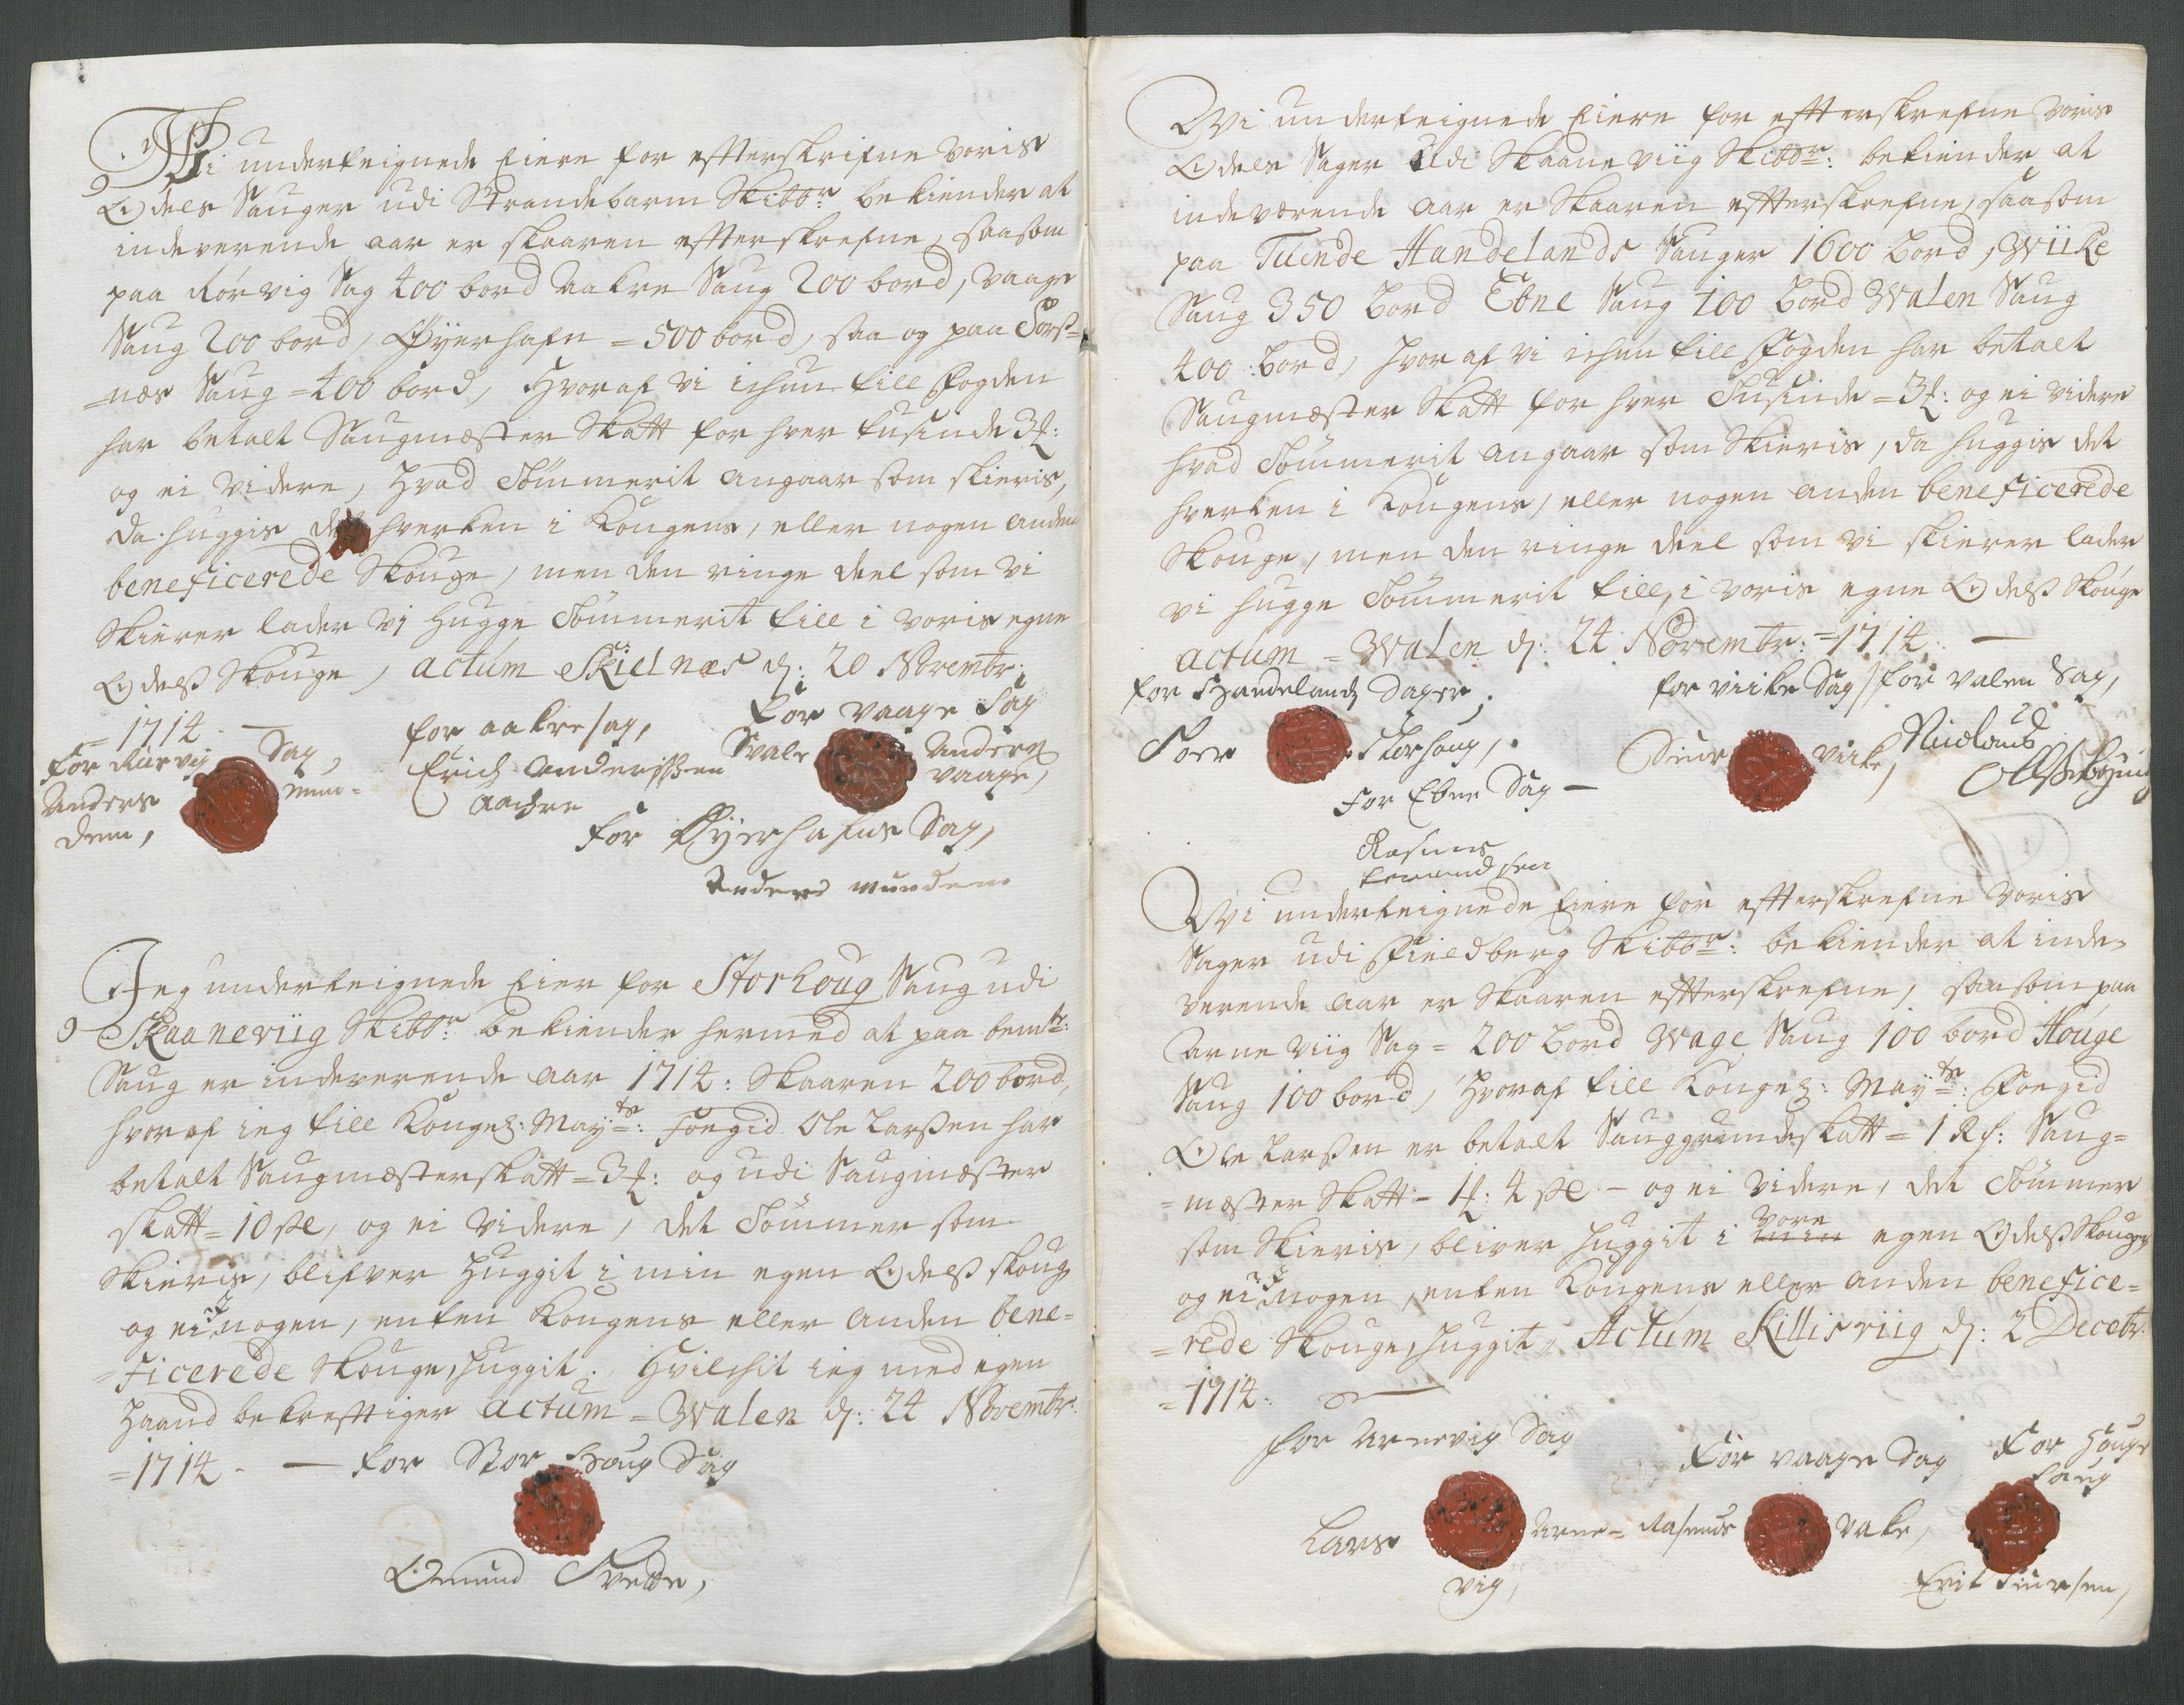 Wi underteignede Eiere for effterskrifne voris
Odels Sauger udi Strandebarm Skibbr: bekiender at
indeverende aar er skaaren effterskrefne, saasom
paa Rørvig Sag 400 bord Aakre Saug 200 bord, Vaage
Saug 200 bord, Øyerhafn = 500 bord, saa og paa Torß-
=næs Saug = 400 bord, Hvoraf vi ichun till Fogden
har betalt Saugmæster Skatt for hver tusinde 3 ʒ:
og ei videre, Hvad Tømmerit angaar som skieris,
da huggis det hverken i Kongens, eller nogen anden
beneficerede Skouge, men den ringe deel som vi
Skierer lader vj Hugge Tømmerit till i voris egne
Odelß Skouge, actum Skielnæs d: 20 Novembr:
= 1714 —
for Rørvig Sag,
Anders Mun=
dem,
for Aakre sag,
Erich Anderssen
Aachre
for Vaage Sag
Anders
Vaage,
for Øyerhafns Sag,
Anders Mundem
Jeg underteignede Eier for Storhoug Saug udi
Skaaneviig Skibbr: bekiender hermed at paa bemte:
Saug er indeverende aar 1714: Skaaren 200 bord,
hvoraf ieg till Kongel: Mayts: Foegid Ole Larßen har
betalt Saugmæsterskatt = 3 ʒ: og udi Saugmæster
skatt = 10 sk, og ei videre, det Tømmer som
Skieris, blifver Huggit i min egen Odelß skoug
og ei i nogen, enten Kongens eller anden bene=
=ficerede Skouge, huggit. Hvilchit ieg med egen
Haand bekrefftiger actum = Walen d: 24 Novembr:
= 1714 - — for Stor Houg Sag
Omund Tvedte,
Wi underteignede Eiere for effterskrefne voris
Odels Sager Udi Skaaneviig Skibbr: bekiender at
indeværende aar er Skaaren effterskrefne, saasom
paa Tuende Handelands Sauger 1600 bord, Wiike
Saug 350 bord Ebne Saug 100 bord Walen Saug
400 bord, hvoraf vi ichun till Fogden har betalt
Saugmæster Skatt for hver Tusinde = 3 ʒ: og ei videre
hvad Tømmerit angaar som Skieris, da huggis det
hverken i Kongens, eller nogen anden beneficerede
Skouge, men den ringe deel som vi skierer lader
vi hugge Tømmerit till, i voris egne Odelß Skouge
actum = Walen d: 24 Novembr: = 1714: —
for Handelands Sager,
for Viike Sag, for Valen Sag,
Toer Storhoug,
Siur Viike,
for Ebne Sag —
Rasmus
Wi underteignede Eiere for effterskrefne voris
Sager udi Fieldberg Skibbr: bekiender at inde=
verende aar er Skaaren effterskrefne, saasom paa
Arneviig Sag = 200 bord Wage Saug 100 bord Houge
Saug 100 bord, Hvoraf till Kongel: Mayts: Foegid
Ole Larßen er betalt Sauggrundskatt = 1 Rd: Saug=
=mæster Skatt = 1 ʒ: 4 sk - og ei videre, det Tømmer
som Skieris, bliver Huggit i min vore egen Odelß Skouger
og ei i nogen, enten Kongens eller anden benefice=
=rede Skouge, huggit, Actum Killisviig d: 2 Decebr:
= 1714: —
for Arnevig Sag
for Vaage Sag
for Houge
Saug
Lars Arne=
vig,
Rasmus Vake,
Erik Siursen,